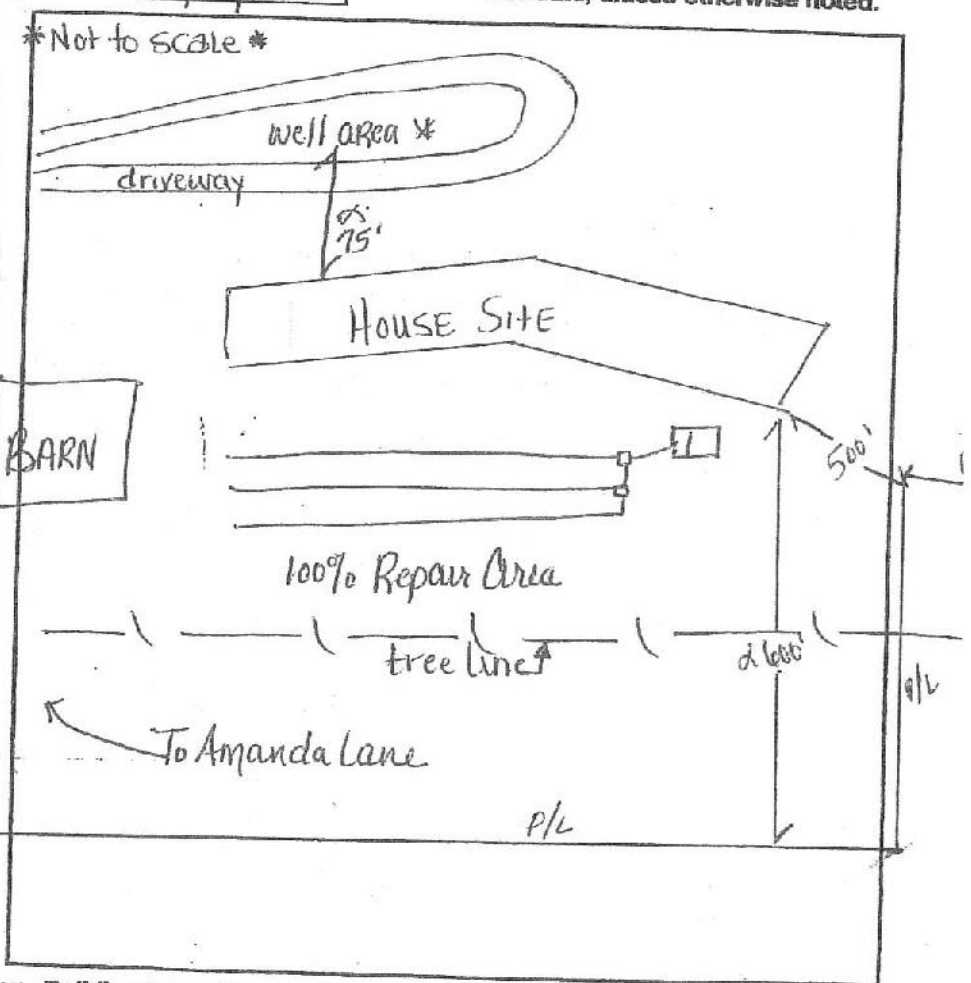 unless otherwise noted.
*Not to scale*
well area *
driveway
75'
HOUSE SITE
BARN
500'
100% Repair Area
tree line
600'
P/L
To Amanda Lane
P/L